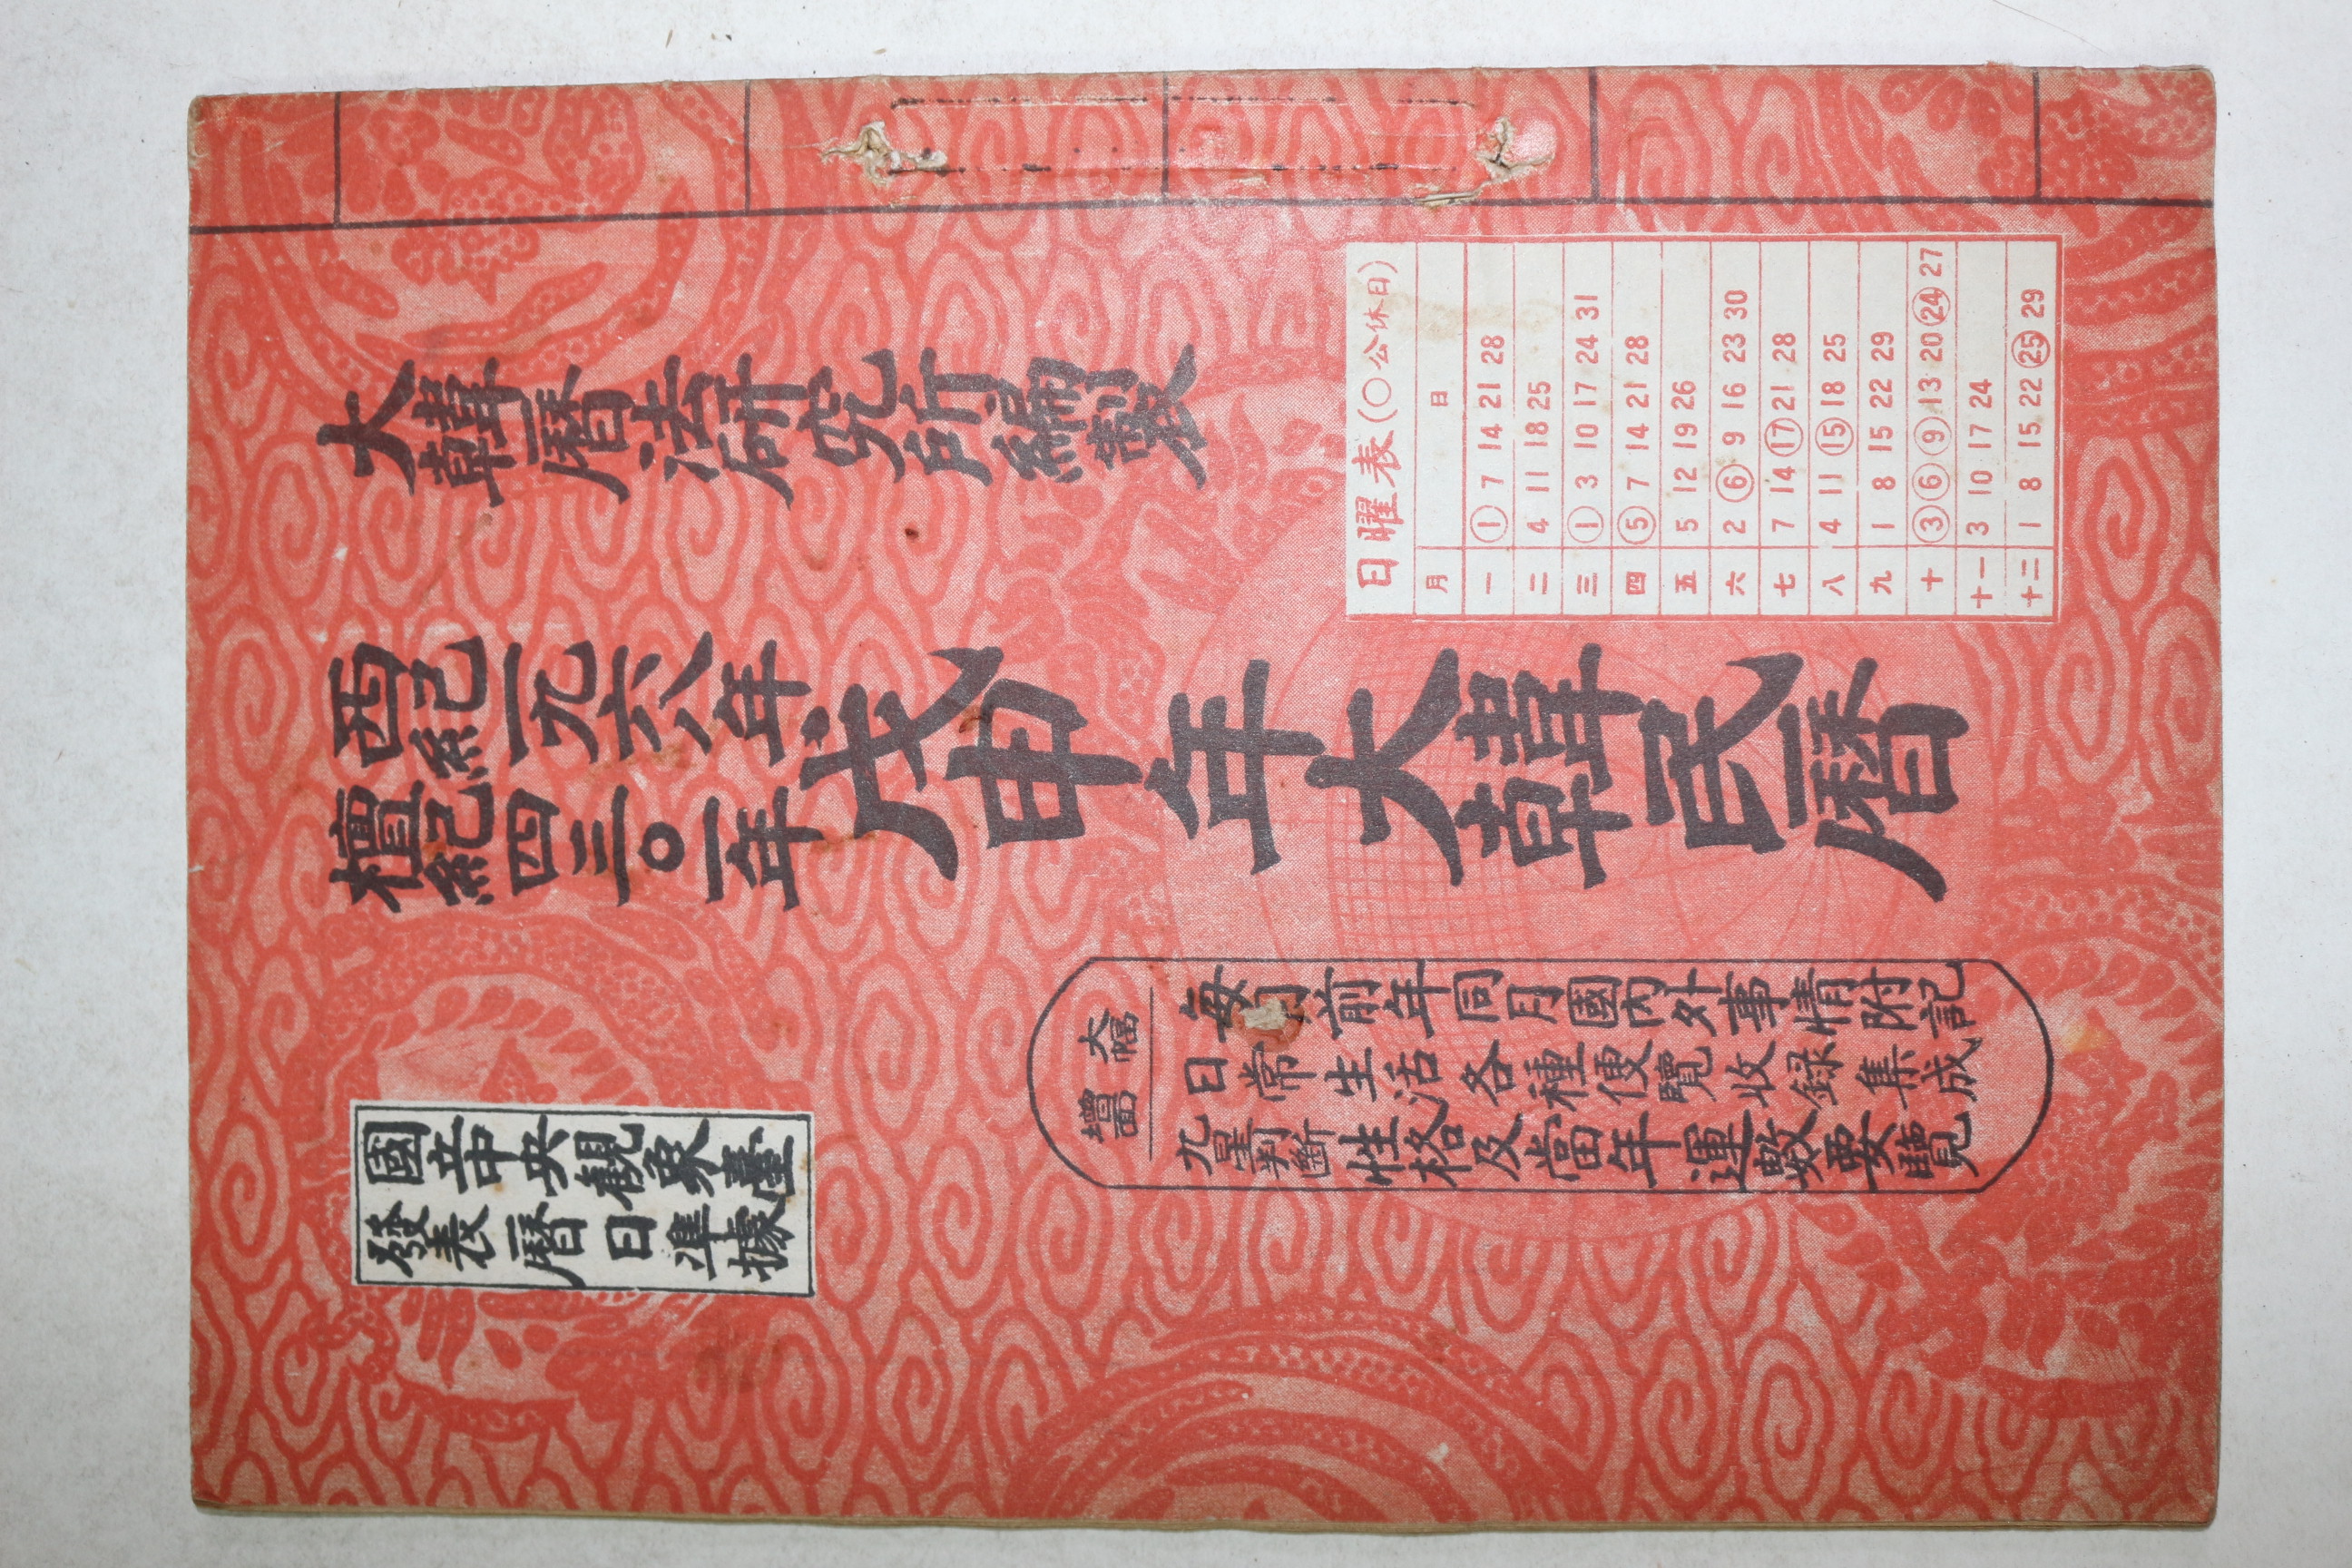 大韓曆法研究所編製
日曜表(○公休日)
月 日
一 ① 7 14 21 28
二 4 11 18 25
三 ① 3 10 17 24 31
四 ⑤ 7 14 21 28
五 5 12 19 26
六 2 ⑥ 9 16 23 30
七 7 14 ⑰ 21 28
八 4 11 ⑮ 18 25
九 1 8 15 22 29
十 ③ ⑥ ⑨ 13 20 ㉔ 27
十一 3 10 17 24
十二 1 8 15 22 ㉕ 29
西紀一九六八年
檀紀四三〇一年
戊申年大韓民曆
大幅
增面
每月前年同月國內外事情附記
日常生活各種便覽收錄集成
九星判斷性格及當年運數要覽
國立中央觀象臺
發表曆日準據